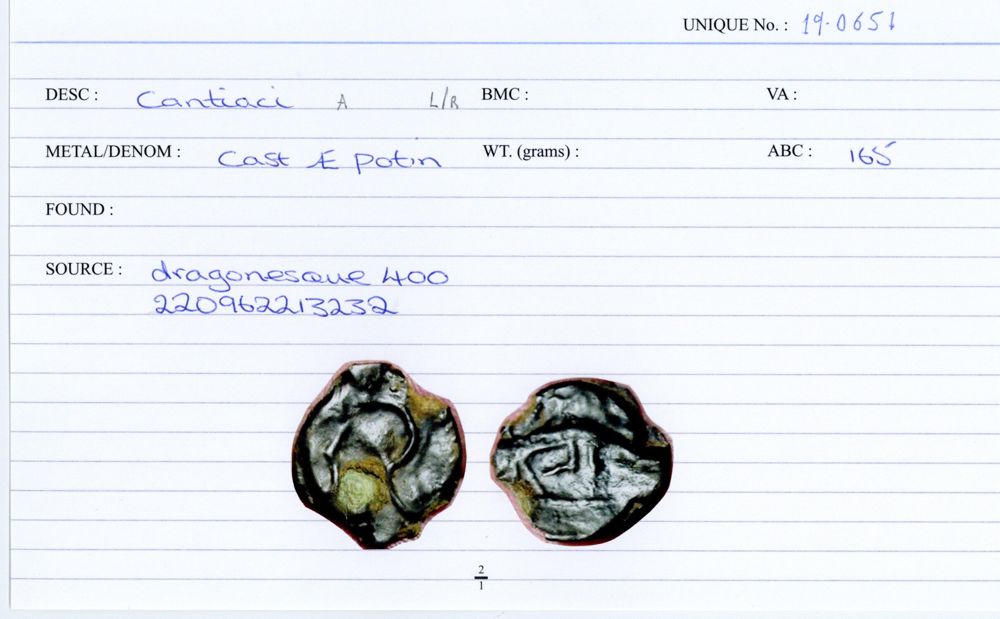 UNIQUE No. : 19.0651
DESC : Cantiaci A L/R BMC : VA :
METAL/DENOM : Cast Æ potin WT. (grams) : ABC : 165
FOUND :
SOURCE : dragonesque 400
220962213232
2
1